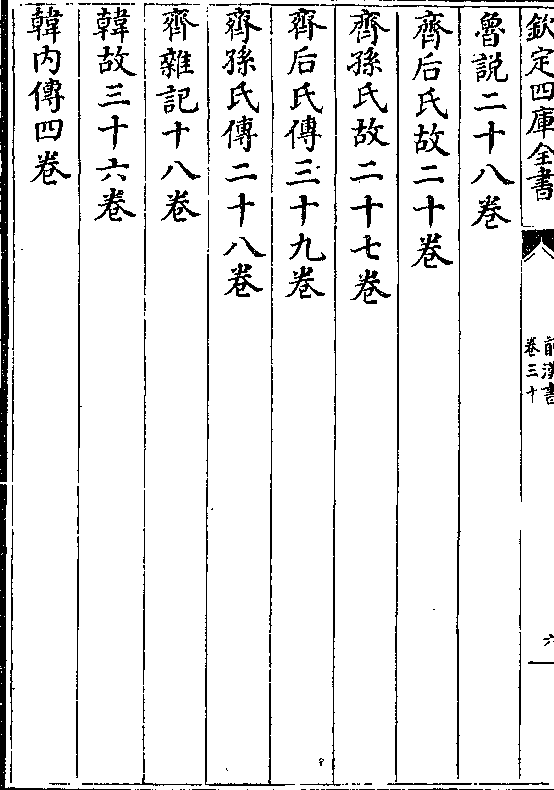 欽定四庫全書
前漢書
卷三十
六
魯説二十八卷
齊后氏故二十卷
齊孫氏故二十七卷
齊后氏傳三十九卷
齊孫氏傳二十八卷
齊雜記十八卷
韓故三十六卷
韓内傳四卷